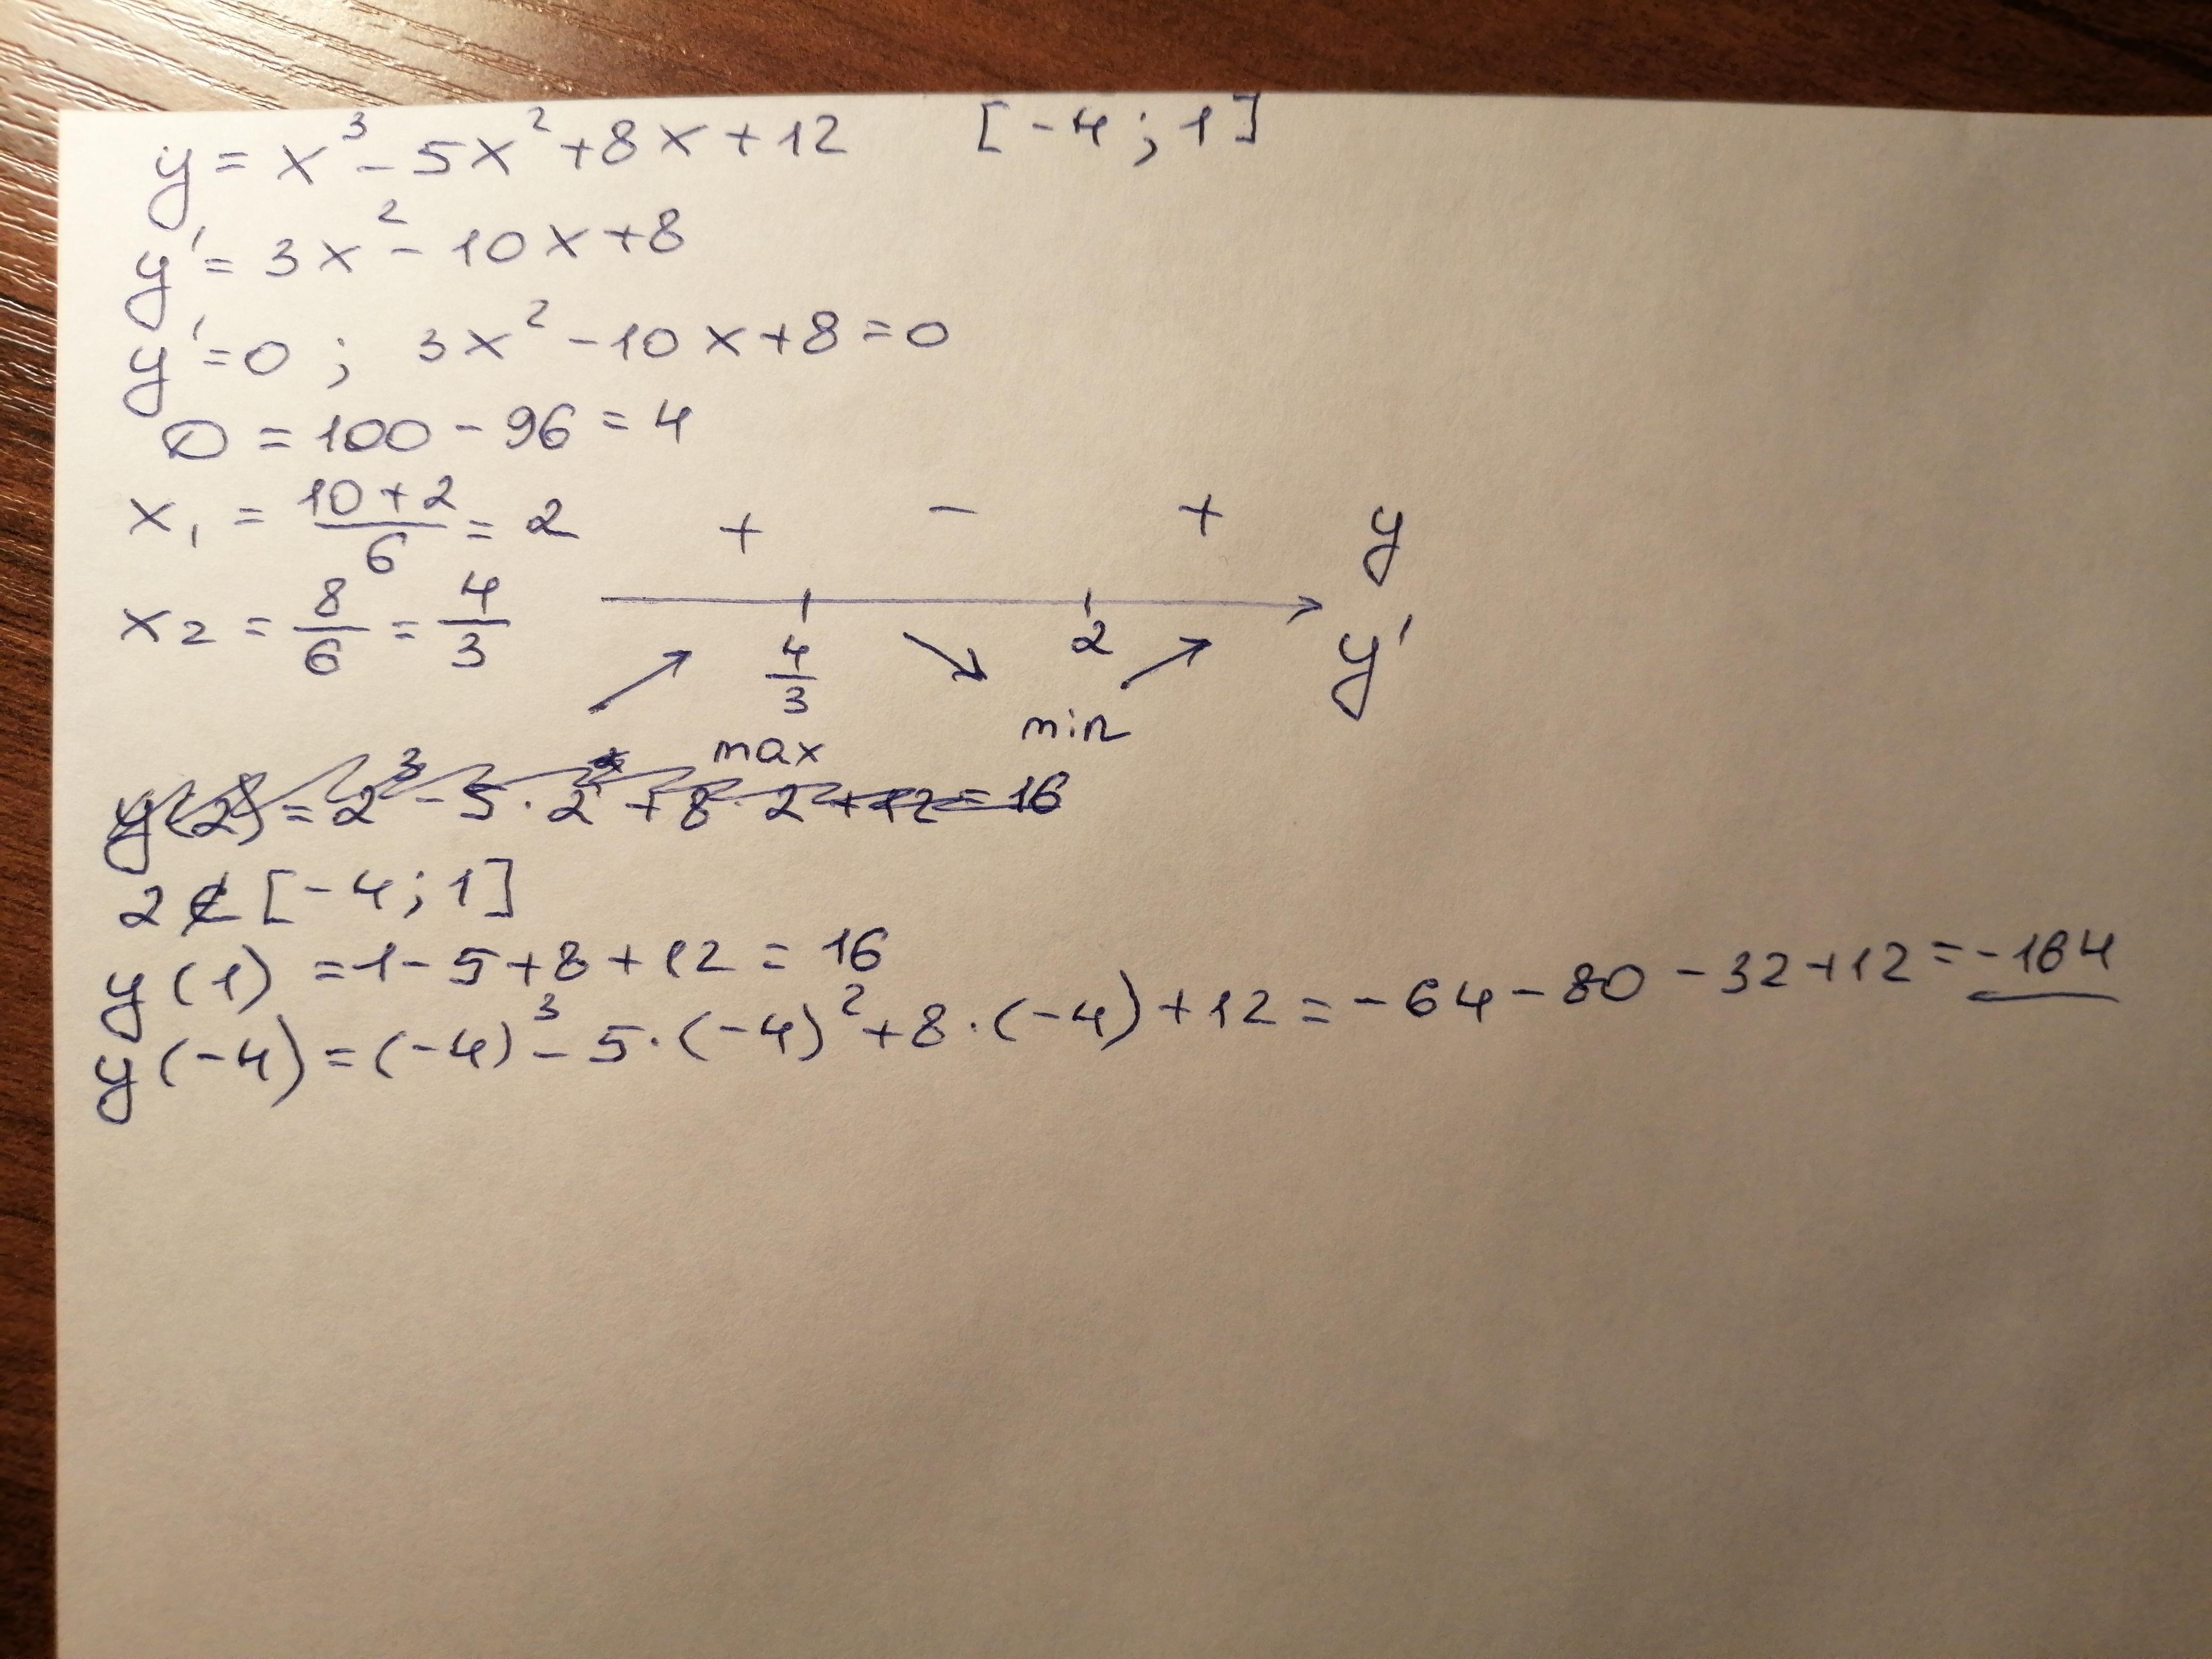 y = x³ - 5x² + 8x + 12 [-4; 1]
y' = 3x² - 10x + 8
y' = 0 ; 3x² - 10x + 8 = 0
D = 100 - 96 = 4
x₁ = (10 + 2)/6 = 2
x₂ = 8/6 = 4/3
+ - + y
4/3 2 y'
max min
y(2) = 2³ - 5 · 2² + 8 · 2 + 12 = 16
2 ∉ [-4; 1]
y(1) = 1 - 5 + 8 + 12 = 16
y(-4) = (-4)³ - 5 · (-4)² + 8 · (-4) + 12 = -64 - 80 - 32 + 12 = -164